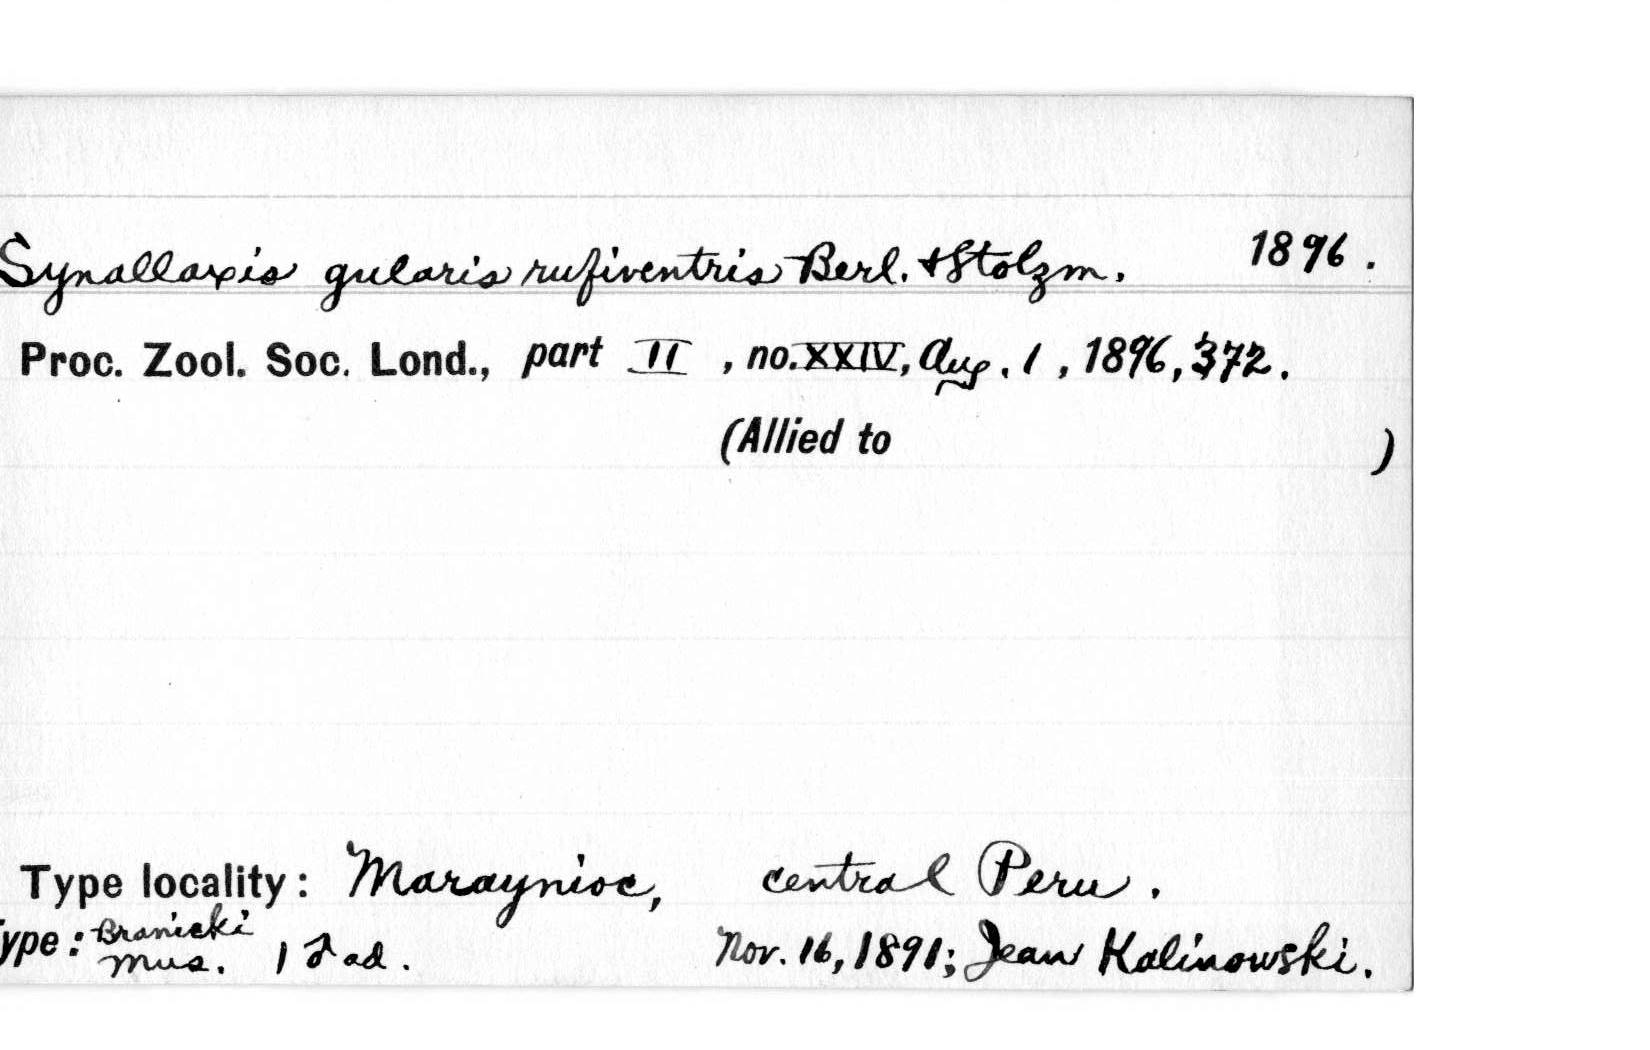 Synallaxis gularis rufiventris Berl. & Stolzm. 1896.
Proc. Zool. Soc. Lond., part II, no. XXIV, Aug. 1, 1896, 372.
(Allied to )
Type locality: Maraynioc, central Peru.
ype: Branicki Mus. 1 ♂ ad. Nov. 16, 1891; Jean Kalinowski.